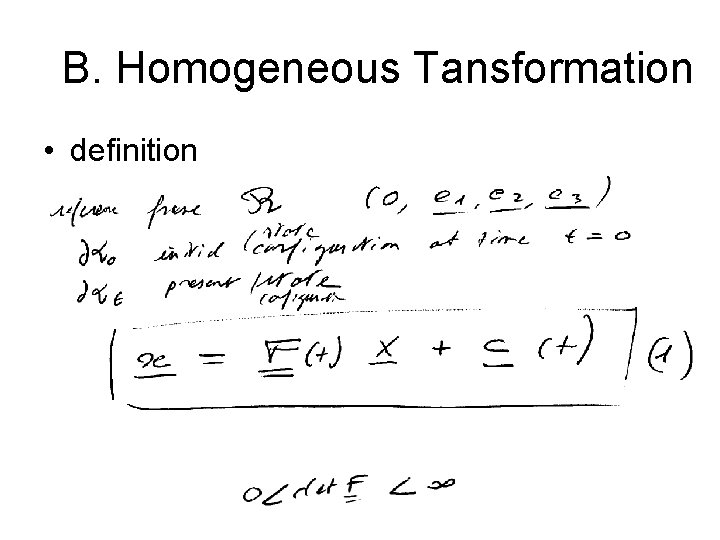 B. Homogeneous Tansformation
• definition
frame ℛ (0, e1, e2, e3)
initial state configuration at time t = 0
present state configuration
x = F(t) X + c (t) (1)
0 < det F < ∞